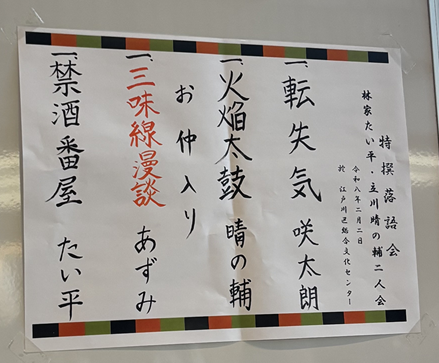 特撰落語会
林家たい平・立川晴の輔二人会
令和八年二月二日
於 江戸川区総合文化センター
一、転失気 咲太朗
一、火焔太鼓 晴の輔
お仲入り
一、三味線漫談 あずみ
一、禁酒番屋 たい平